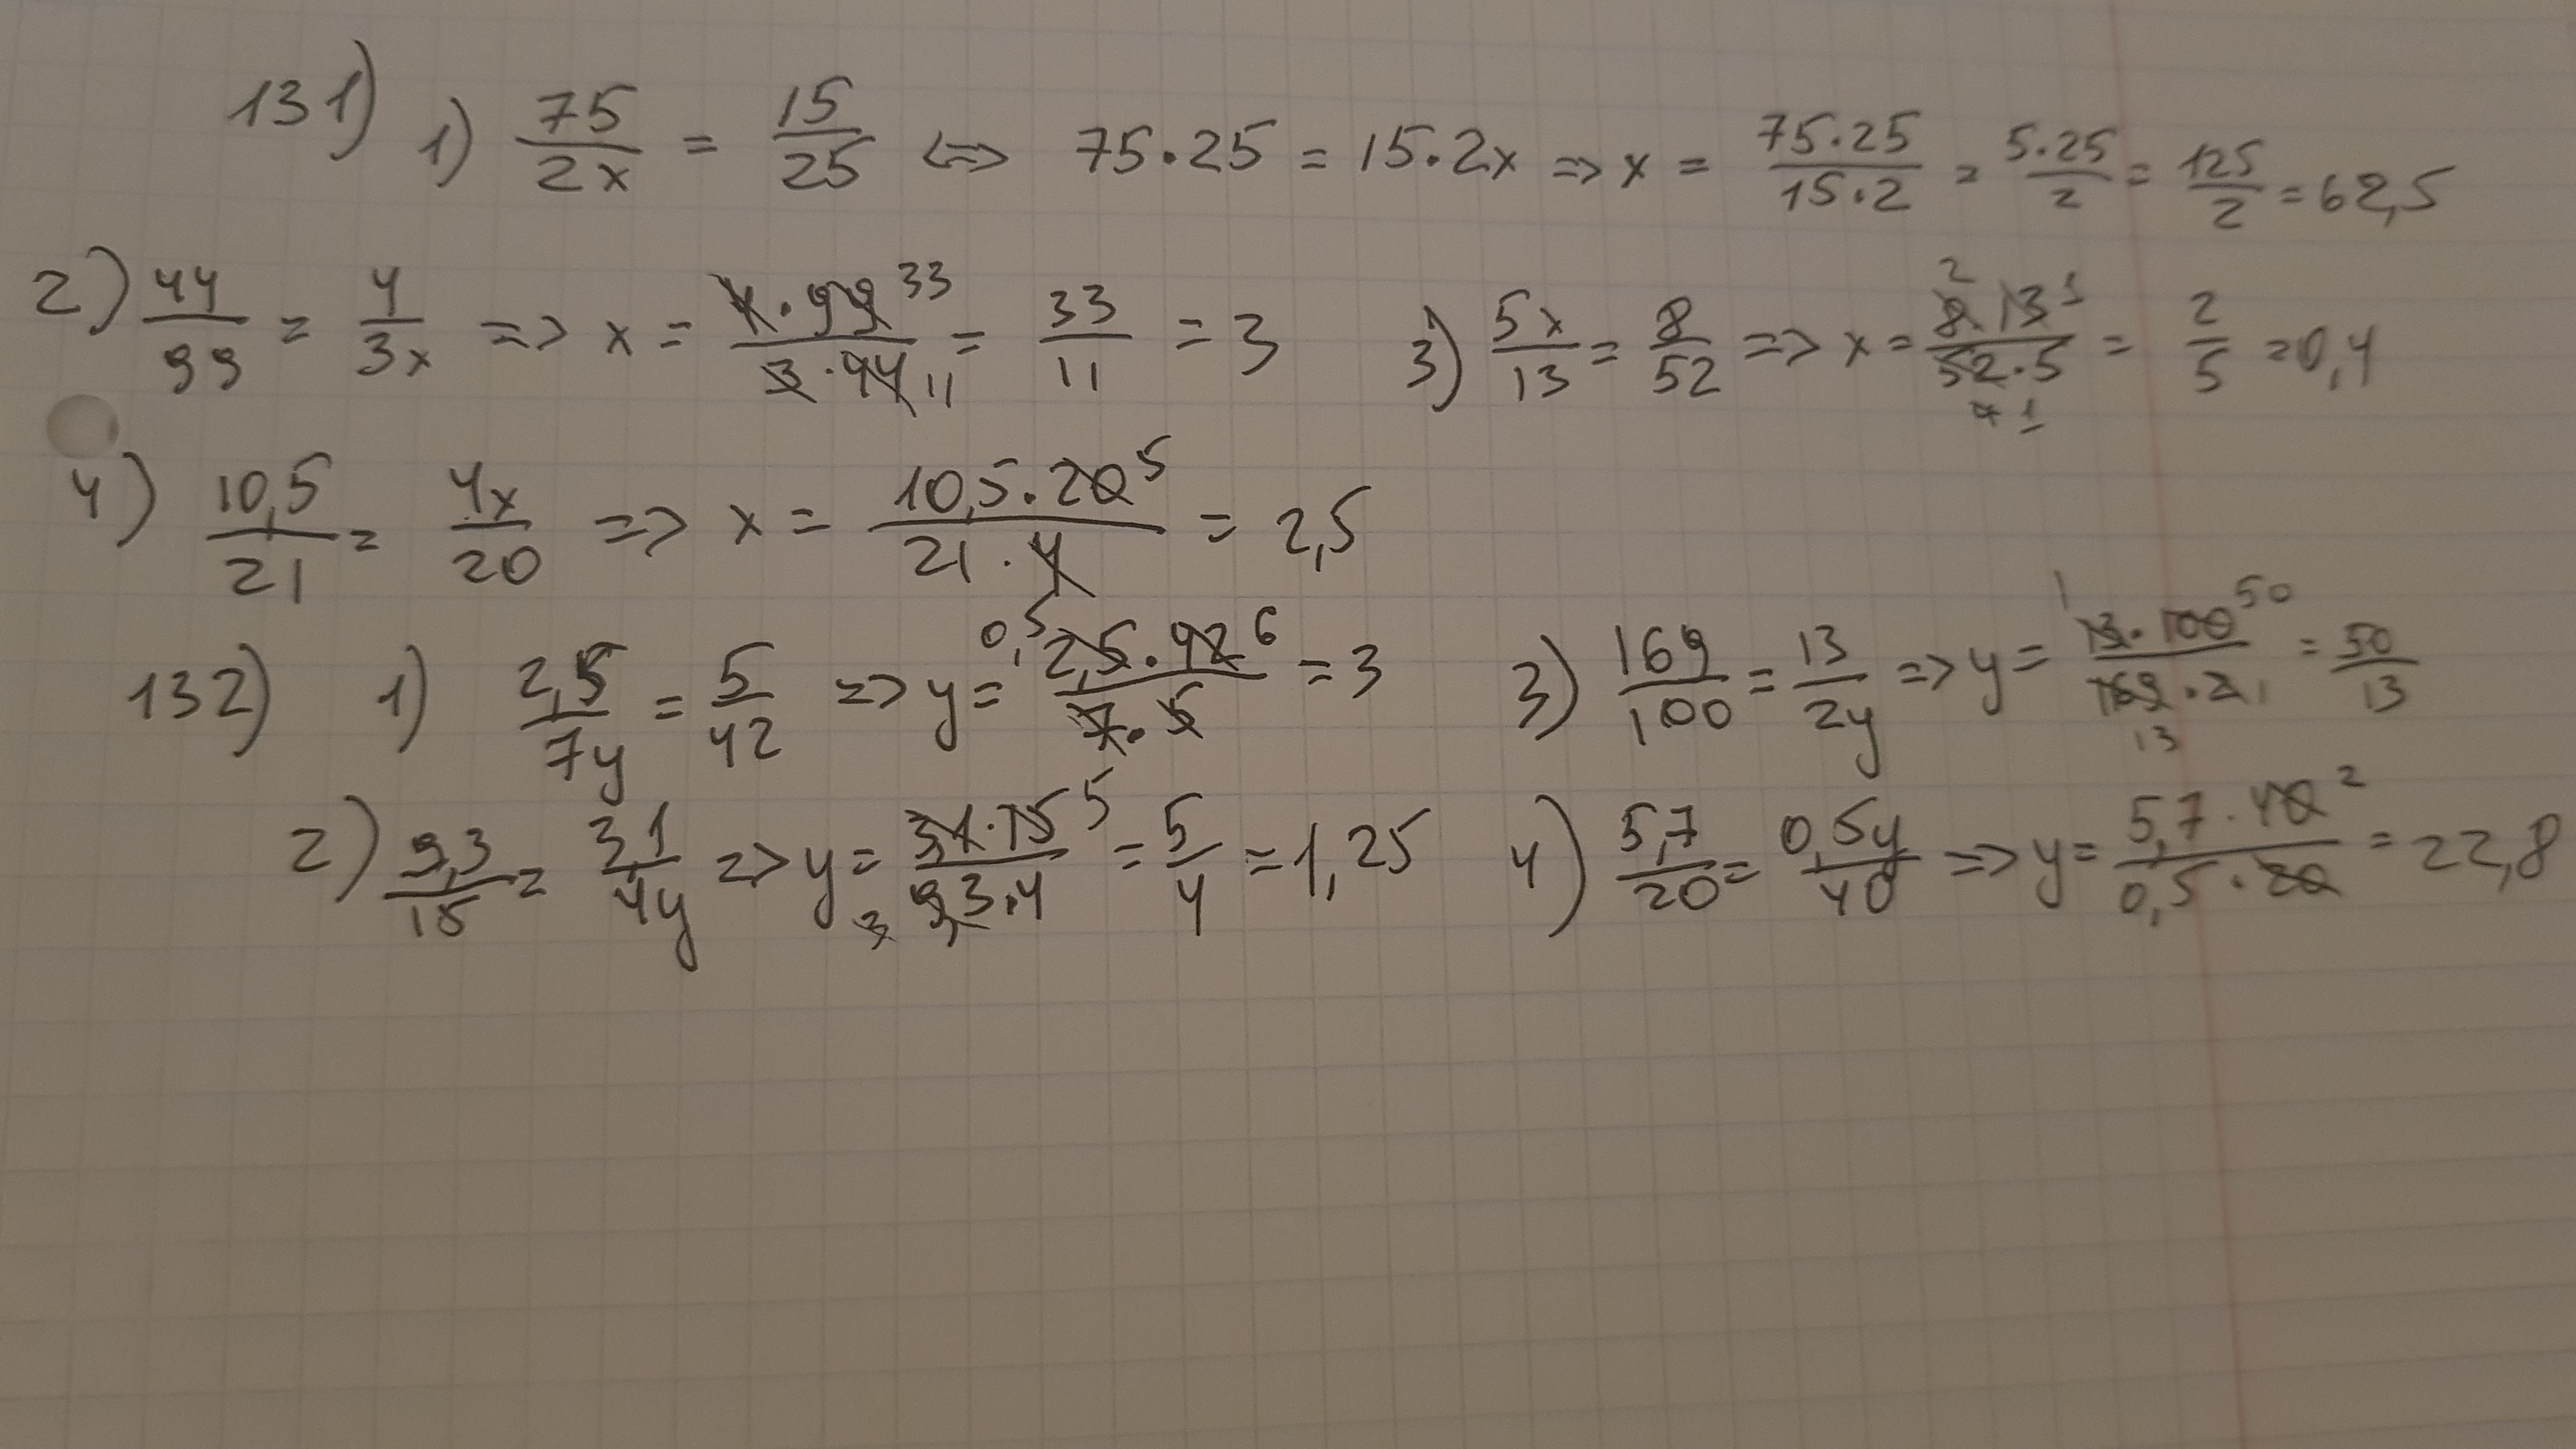 131) 1) 75/2x = 15/25 <=> 75·25 = 15·2x => x = 75·25/15·2 = 5·25/2 = 125/2 = 62,5
2) 44/99 = 4/3x => x = 4·99 33/3·44 11 = 33/11 = 3 3) 5x/13 = 8/52 => x = 2 8·13 1/52·5 4 1 = 2/5 = 0,4
4) 10,5/21 = 4x/20 => x = 10,5·20 5/21·4 = 2,5
132) 1) 2,5/7y = 5/42 => y = 0,5 2,5·42 6/7·5 = 3 3) 169/100 = 13/2y => y = 1 13·100 50/169·2 13 1 = 50/13
2) 9,3/15 = 31/4y => y = 31·15 5/9,3·4 3 = 5/4 = 1,25 4) 5,7/20 = 0,5y/40 => y = 5,7·40 2/0,5·20 = 22,8